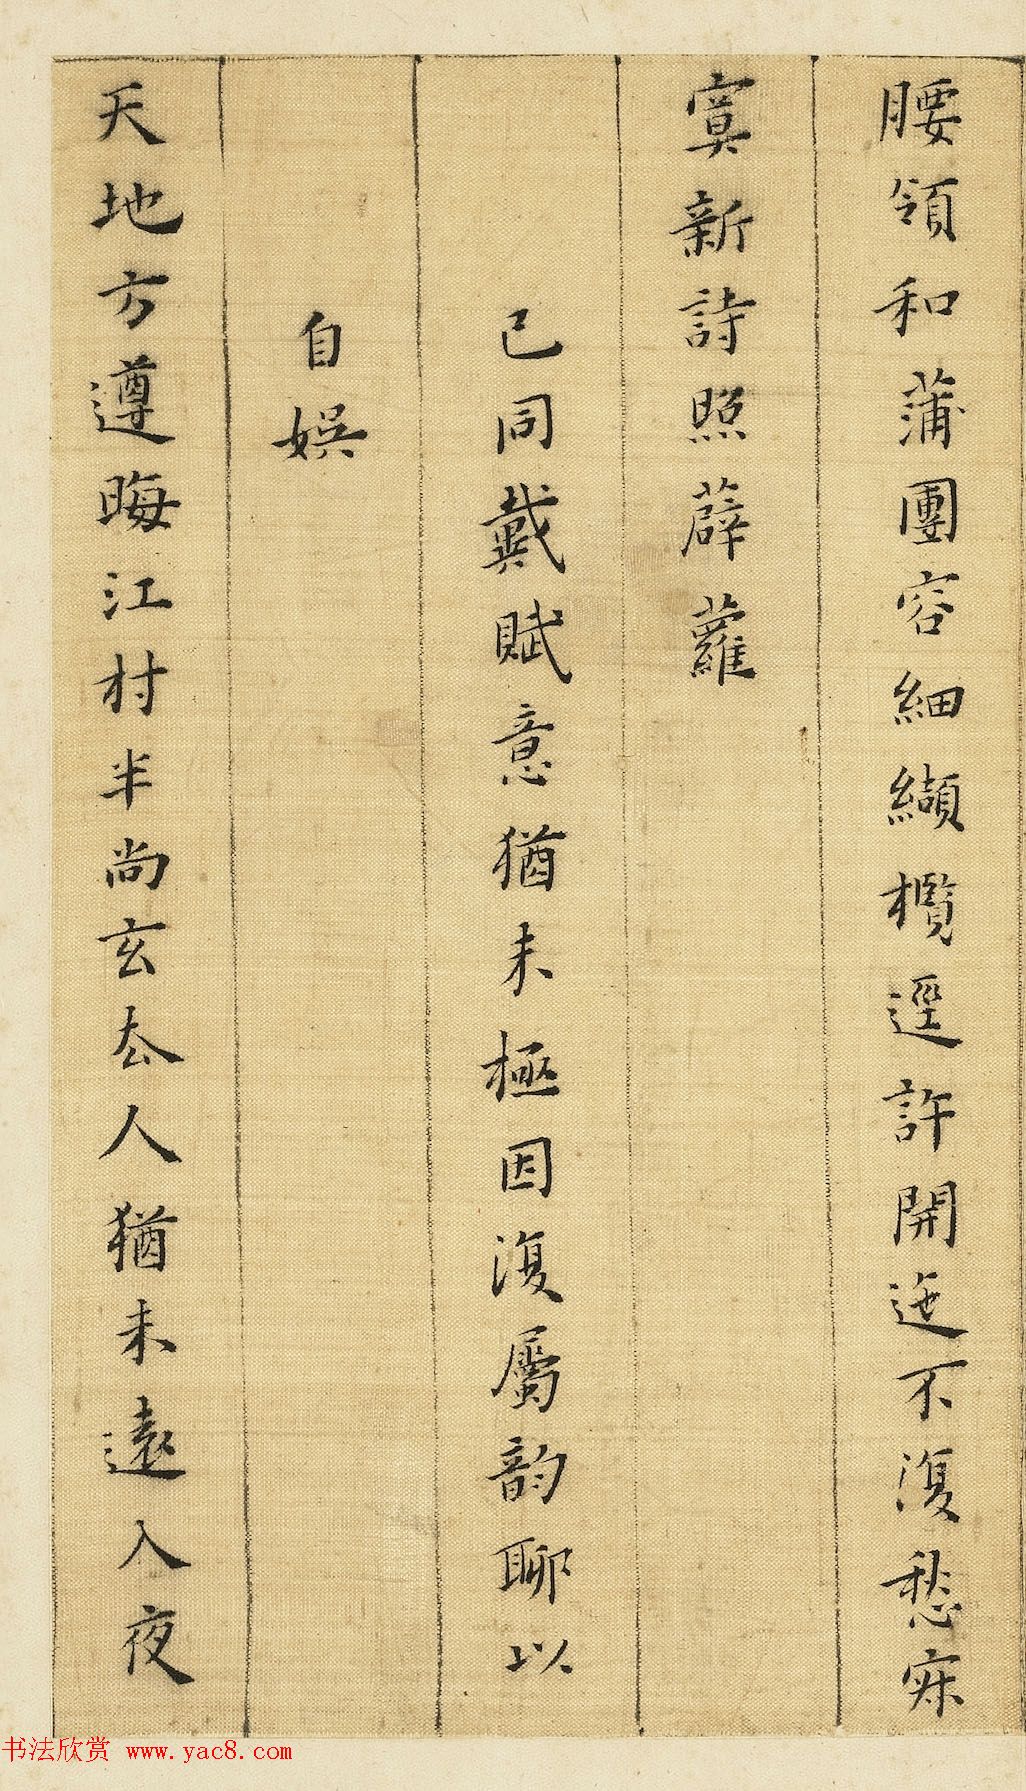 腰領和蒲團容細纈欖逕許開迤不復愁寂
寞新詩照薜蘿
已同戴賦意猶未極因復屬韵聊以
自娛
天地方遵晦江村半尚玄太人猶未遠入夜
书法欣赏 www.yac8.com